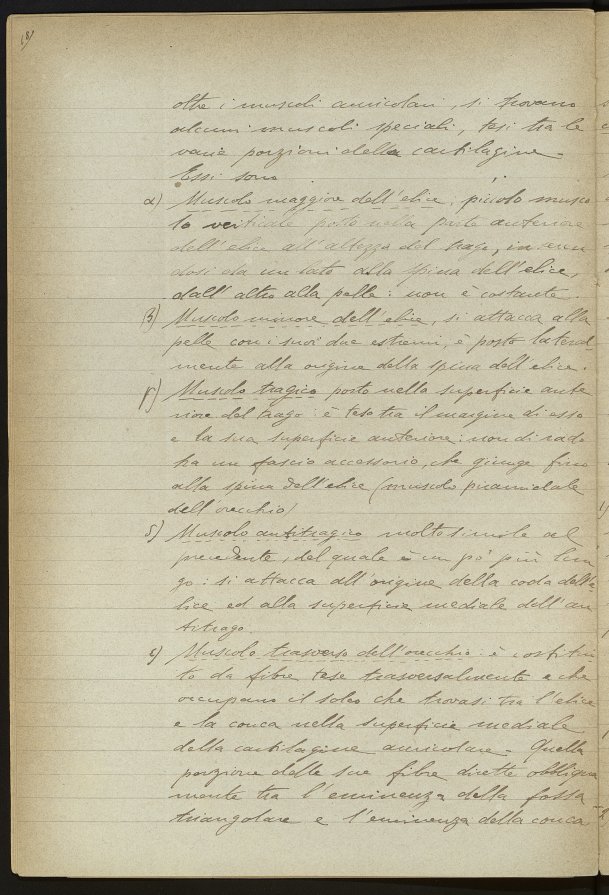 (8)
oltre i muscoli auricolari, si trovano
alcuni muscoli speciali, tesi tra le
varie porzioni della cartilagine.
Essi sono:
α) Muscolo maggiore dell'elice, piccolo musco
lo verticale posto nella parte anteriore
dell'elice all'altezza del trago, inseren
dosi da un lato alla spina dell'elice,
dall'altro alla pelle: non è costante
β) Muscolo minore dell'elice, si attacca alla
pelle con i suoi due estremi, è posto lateral
mente alla origine della spina dell'elice.
γ) Muscolo tragico posto nella superficie ante
riore del trago: è teso tra il margine di esso
e la sua superficie anteriore: non di rado
ha un fascio accessorio, che giunge fino
alla spina dell'elice (muscolo piramidale
dell'orecchio)
δ) Muscolo antitragico molto simile al
precedente, del quale è un po' più lun
go: si attacca all'origine della coda dell'e
lice ed alla superficie mediale dell'an
titrago.
ε) Muscolo trasverso dell'orecchio: è costitui
to da fibre tese trasversalmente e che
occupano il solco che trovasi tra l'elice
e la conca nella superficie mediale
della cartilagine auricolare. Quella
porzione delle sue fibre dirette obbliqua
mente tra l'eminenza della fossa
triangolare e l'eminenza della conca